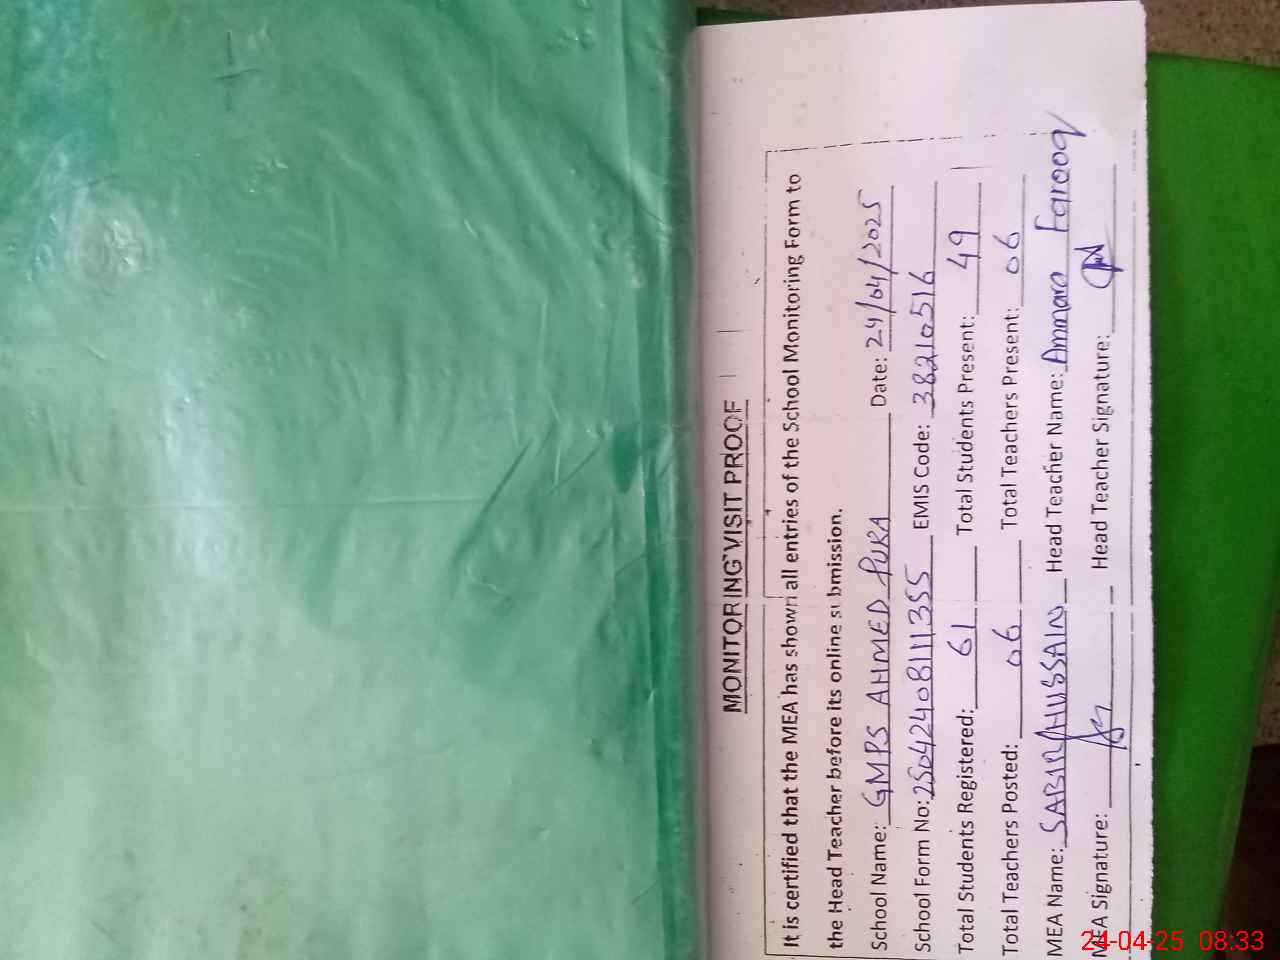 MONITORING VISIT PROOF
It is certified that the MEA has shown all entries of the School Monitoring Form to
the Head Teacher before its online submission.
School Name: GMPS AHMED PURA Date: 24/04/2025
School Form No: 25042408111355 EMIS Code: 38210516
Total Students Registered: 61 Total Students Present: 49
Total Teachers Posted: 06 Total Teachers Present: 06
MEA Name: SABIR HUSSAIN Head Teacher Name: Ammara Farooq
MEA Signature: Head Teacher Signature:
24-04-25 08:33